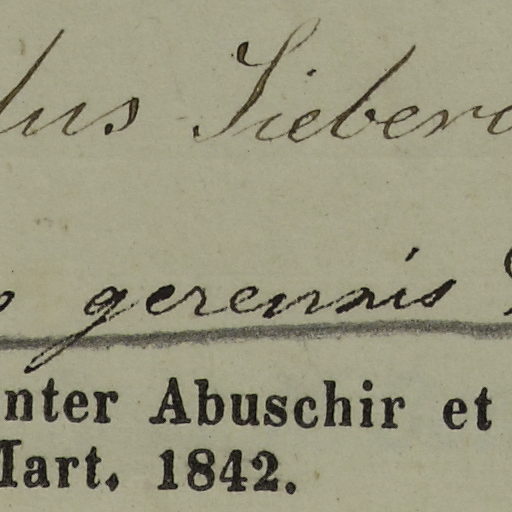 lus Sieber
gerennis
nter Abuschir et
Mart. 1842.